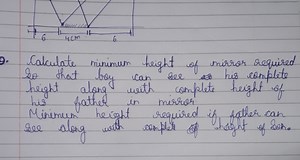 6 4cm 6
9. Calculate minimum height of mirror required
so that boy can see his complete
height along with complete height of
his father in mirror
Minimum height required if father can
see along with complete height of son.